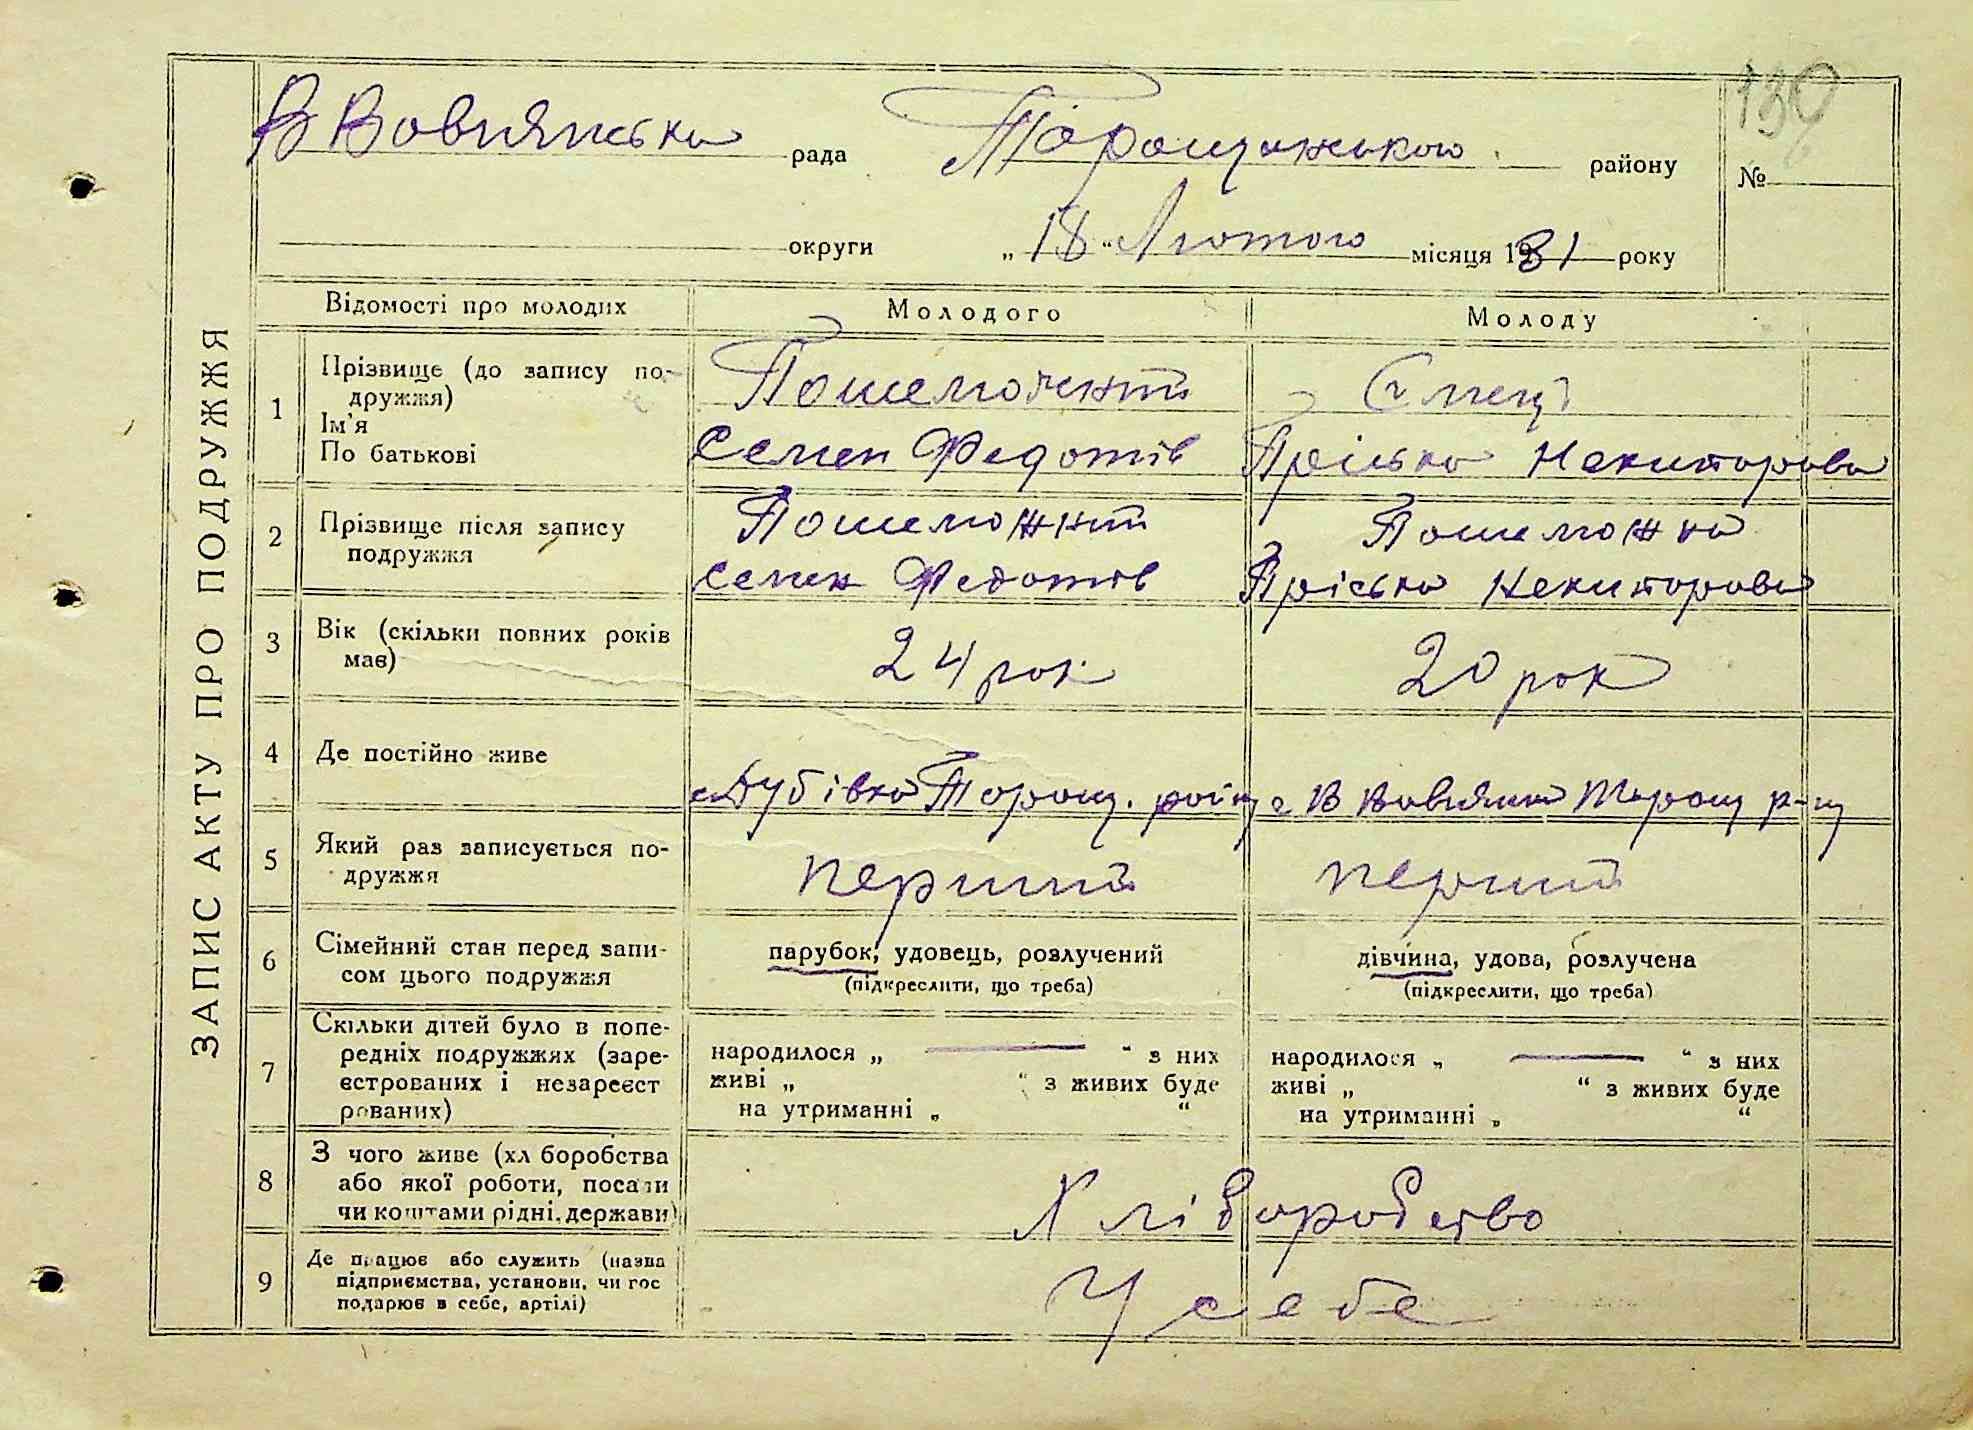 ЗАПИС АКТУ ПРО ПОДРУЖЖЯ
В Вовнянська рада Таращанського району
139
№
округи „18“ Лютого місяця 1931 року
Відомості про молодих Молодого Молоду
1 Прізвище (до запису по-
дружжя)
Ім'я
По батькові
Пошеможний
Семен Федотів
Пріська Некиторова
2 Прізвище після запису
подружжя
Пошеможний
Семен Федотів
Пошеможна
Пріська Некиторова
3 Вік (скільки повних років
має)
24 рок 20 рок
4 Де постійно живе
с Дубівка Торащ. район с В Вовнянка Торащ р-ну
5 Який раз записується по-
дружжя
перший перший
6 Сімейний стан перед запи-
сом цього подружжя
парубок, удовець, розлучений
(підкреслити, що треба)
дівчина, удова, розлучена
(підкреслити, що треба)
7 Скільки дітей було в попе-
редніх подружжях (заре-
єстрованих і незареєст
рованих)
народилося „ “ з них
живі „ “ з живих буде
на утриманні „ “
народилося „ “ з них
живі „ “ з живих буде
на утриманні „ “
8 З чого живе (хл боробства
або якої роботи, посади
чи коштами рідні, держави)
Хліборобство
9 Де працює або служить (назва
підприємства, установи, чи гос
подарює в себе, артілі)
У себе